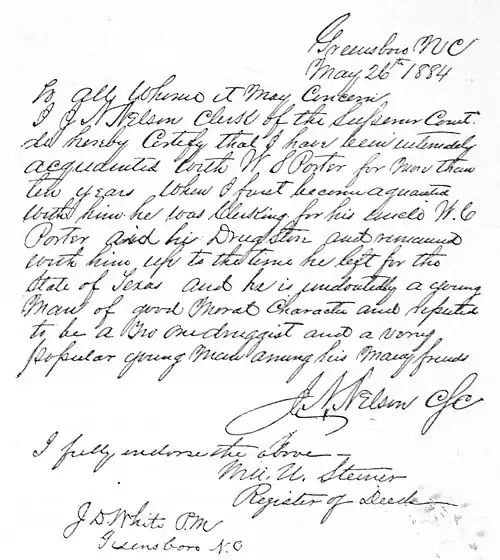 Greensboro N C
May 26th 1884
To all whome it May Concern
I J N Nelson Clerk of the Supenor Court
do hereby Certify that I have been intimately
acquainted with W S Porter for More than
ten years When I first became aquainted
with him he was Clerking for his uncle W. C
Porter in his Drug Store and remained
with him up to the time he left for the
State of Texas and he is undoutedly a young
Man of good Moral Character and reputed
to be a No one druggist and a very
popular young Man among his Many friends
J. N. Nelson CSC
I fully endorse the above
U. Steiner
Register of Deeds
J D White P.M
Greensboro N.C